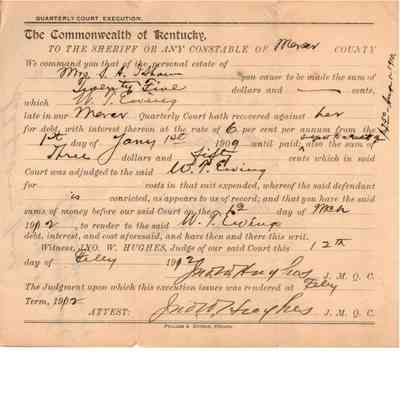 QUARTERLY COURT, EXECUTION.
The Commonwealth of Kentucky,
TO THE SHERIFF OR ANY CONSTABLE OF Mercer COUNTY
We command you that of the personal estate of
Mrs S. A. you cause to be made the sum of
Twenty Five dollars and — cents,
which W. T. Ewing
late in our Mercer Quarterly Court hath recovered against her
for debt, with interest thereon at the rate of 6 per cent per annum from the
1st day of Jany 1st 1909 until paid; also the sum of
Three dollars and fifty cents which in said
Court was adjudged to the said W. T. Ewing
for costs in that suit expended, whereof the said defendant
is convicted, as appears to us of record; and that you have the said
sums of money before our said Court on the day of Mch
1912, to render to the said W. T. Ewing
debt, interest, and cost aforesaid, and have then and there this writ.
Witness, JNO. W. HUGHES, Judge of our said Court this 12th
day of Feby 1912 Jno W Hughes J. M. Q. C.
The Judgment upon which this execution issues was rendered at Feby
Term, 1912
ATTEST: Jno W. Hughes J. M. Q. C.